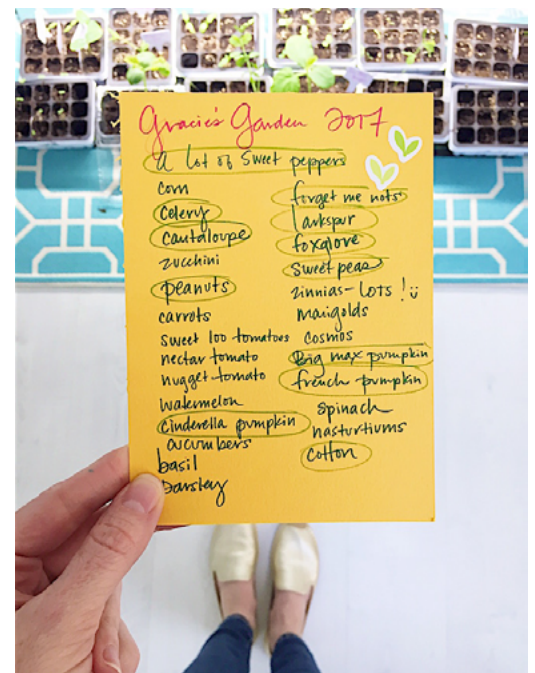 Gracie's Garden 2017
a lot of sweet peppers
corn
celery
cantaloupe
zucchini
peanuts
carrots
sweet 100 tomatoes
nectar tomato
nugget tomato
watermelon
cinderella pumpkin
cucumbers
basil
parsley
forget me nots
larkspur
foxglove
sweet peas
zinnias - LOTS !
marigolds
cosmos
Big max pumpkin
french pumpkin
spinach
nasturtiums
cotton